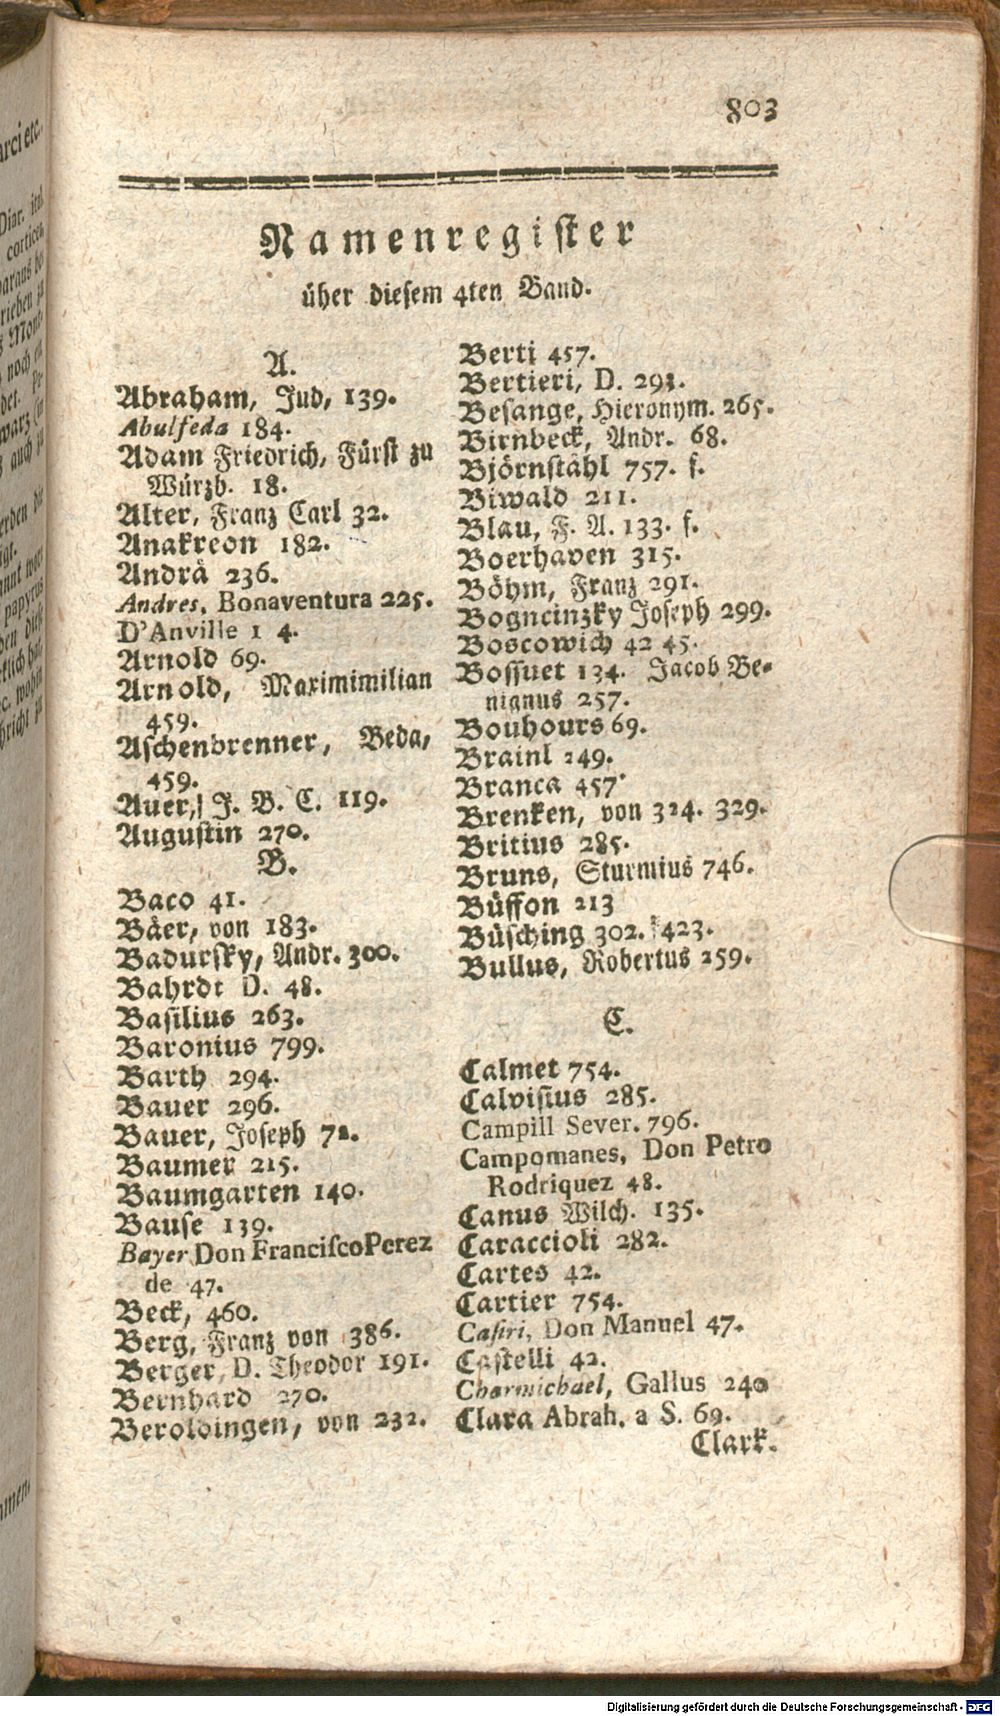 803
Namenregister
über diesem 4ten Band.
A.
Abraham, Jud, 139.
Abulfeda 184.
Adam Friedrich, Fürst zu
Würzb. 18.
Alter, Franz Carl 32.
Anakreon 182.
Andrä 236.
Andres, Bonaventura 225.
D'Anville 1 4.
Arnold 69.
Arnold, Maximimilian
459.
Aschenbrenner, Beda,
459.
Auer, J. B. C. 119.
Augustin 270.
B.
Baco 41.
Bäer, von 183.
Badursky, Andr. 300.
Bahrdt D. 48.
Basilius 263.
Baronius 799.
Barth 294.
Bauer 296.
Bauer, Joseph 72.
Baumer 215.
Baumgarten 140.
Bause 139.
Bayer Don Franciſco Perez
de 47.
Beck, 460.
Berg, Franz von 386.
Berger, D. Theodor 191.
Bernhard 270.
Beroldingen, von 232.
Berti 457.
Bertieri, D. 293.
Besange, Hieronym. 265.
Birnbeck, Andr. 68.
Björnstähl 757. f.
Biwald 211.
Blau, F. A. 133. f.
Boerhaven 315.
Böhm, Franz 291.
Bogncinzky Joseph 299.
Boscowich 42 45.
Bossuet 134. Jacob Be-
nignus 257.
Bouhours 69.
Brainl 249.
Branca 457.
Brenken, von 324. 329.
Britius 285.
Bruns, Sturmius 746.
Büffon 213
Büsching 302. 423.
Bullus, Robertus 259.
C.
Calmet 754.
Calvisius 285.
Campill Sever. 796.
Campomanes, Don Petro
Rodriquez 48.
Canus Wilch. 135.
Caraccioli 282.
Cartes 42.
Cartier 754.
Caſiri, Don Manuel 47.
Castelli 42.
Charmichael, Gallus 240
Clara Abrah. a S. 69.
Clark.
Digitalisierung gefördert durch die Deutsche Forschungsgemeinschaft - DFG